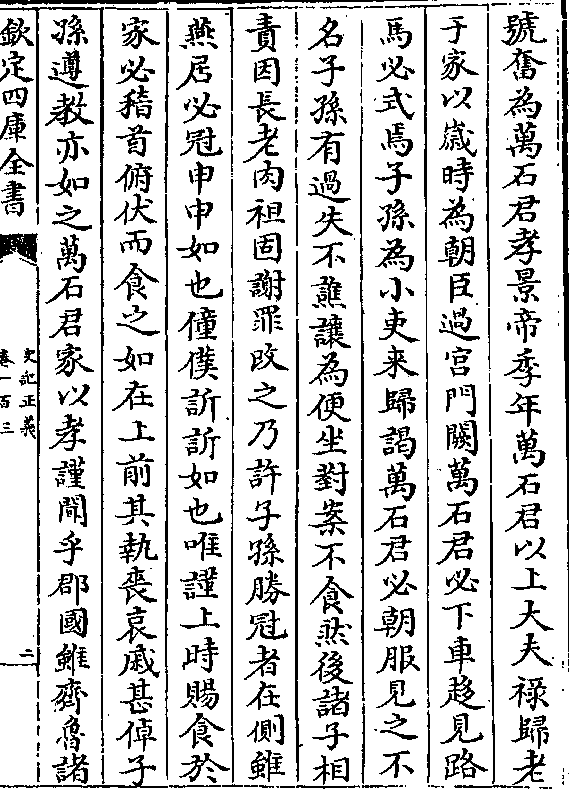 號奮為萬石君孝景帝季年萬石君以上大夫祿歸老
于家以嵗時為朝臣過宫門闕萬石君必下車趨見路
馬必式焉子孫為小吏来歸謁萬石君必朝服見之不
名子孫有過失不譙讓為便坐對案不食然後諸子相
責因長老肉袒固謝罪改之乃許子孫勝冠者在側雖
燕居必冠申申如也僮僕訢訢如也唯謹上時賜食於
家必稽首俯伏而食之如在上前其執喪哀戚甚悼子
孫遵教亦如之萬石君家以孝謹聞乎郡國雖齊魯諸
欽定四庫全書
史記正義
卷一百三
二